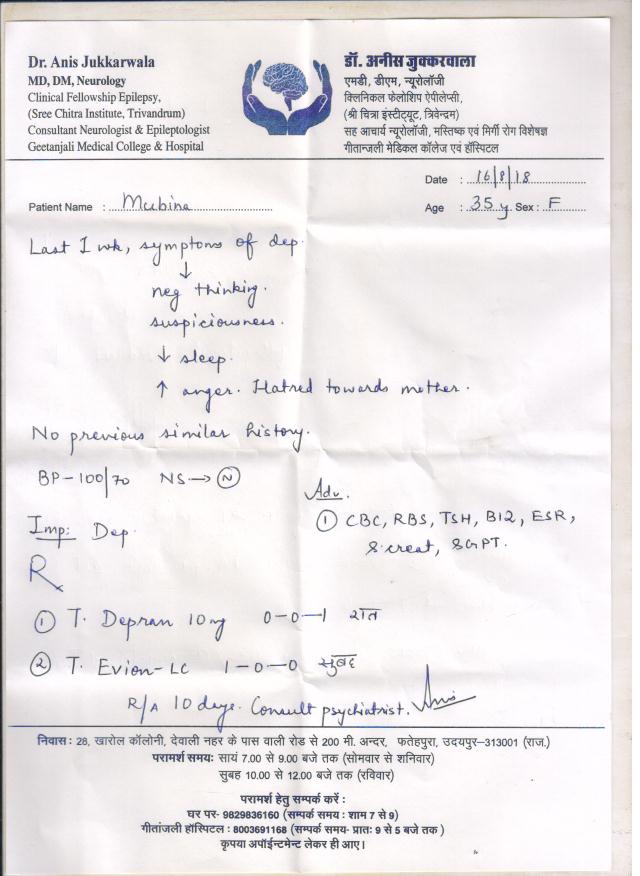 Dr. Anis Jukkarwala
MD, DM, Neurology
Clinical Fellowship Epilepsy,
(Sree Chitra Institute, Trivandrum)
Consultant Neurologist & Epileptologist
Geetanjali Medical College & Hospital
डॉ. अनीस जुक्करवाला
एमडी, डीएम, न्यूरोलॉजी
क्लिनिकल फेलोशिप ऐपीलेप्सी,
(श्री चित्रा इंस्टीट्यूट, त्रिवेन्द्रम)
सह आचार्य न्यूरोलॉजी, मस्तिष्क एवं मिर्गी रोग विशेषज्ञ
गीतान्जली मेडिकल कॉलेज एवं हॉस्पिटल
Date : 16/8/18
Patient Name : Mubina
Age : 35 y. Sex : F
Last 1 wk, symptoms of dep.
↓
neg thinking.
suspiciousness.
↓ sleep.
↑ anger. Hatred towards mother.
No previous similar history.
BP-100/70 NS→ (N)
Adv.
① CBC, RBS, TSH, B12, ESR,
S.creat, SGPT.
Imp: Dep.
Rx
① T. Depran 10mg 0-0-1 रात
② T. Evion-LC 1-0-0 सुबह
R/A 10 days. Consult psychiatrist. Anis
निवास : 28, खारोल कॉलोनी, देवाली नहर के पास वाली रोड से 200 मी. अन्दर, फतेहपुरा, उदयपुर–313001 (राज.)
परामर्श समयः सायं 7.00 से 9.00 बजे तक (सोमवार से शनिवार)
सुबह 10.00 से 12.00 बजे तक (रविवार)
परामर्श हेतु सम्पर्क करें :
घर पर- 9829836160 (सम्पर्क समय : शाम 7 से 9)
गीतांजली हॉस्पिटल : 8003691168 (सम्पर्क समय- प्रातः 9 से 5 बजे तक )
कृपया अपॉईन्टमेन्ट लेकर ही आए।